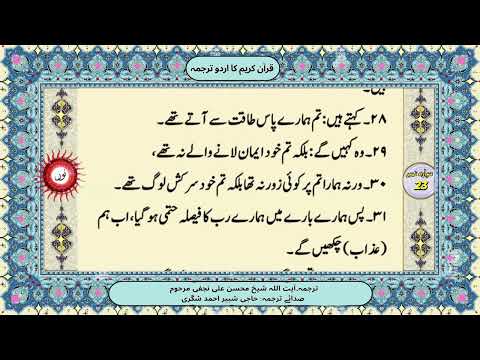 قرآن کریم کا اردو ترجمہ
ہیں۔
۲۸۔ کہتے ہیں: تم ہمارے پاس طاقت سے آتے تھے۔
۲۹۔ وہ کہیں گے: بلکہ تم خود ایمان لانے والے نہ تھے،
۳۰۔ ورنہ ہمارا تم پر کوئی زور نہ تھا بلکہ تم خود سرکش لوگ تھے۔
۳۱۔ پس ہمارے بارے میں ہمارے رب کا فیصلہ حتمی ہو گیا، اب ہم
(عذاب) چکھیں گے۔
نور
23
ترجمہ۔آیت اللہ شیخ محسن علی نجفی مرحوم
صدائے ترجمہ: حاجی شبیر احمد شگری